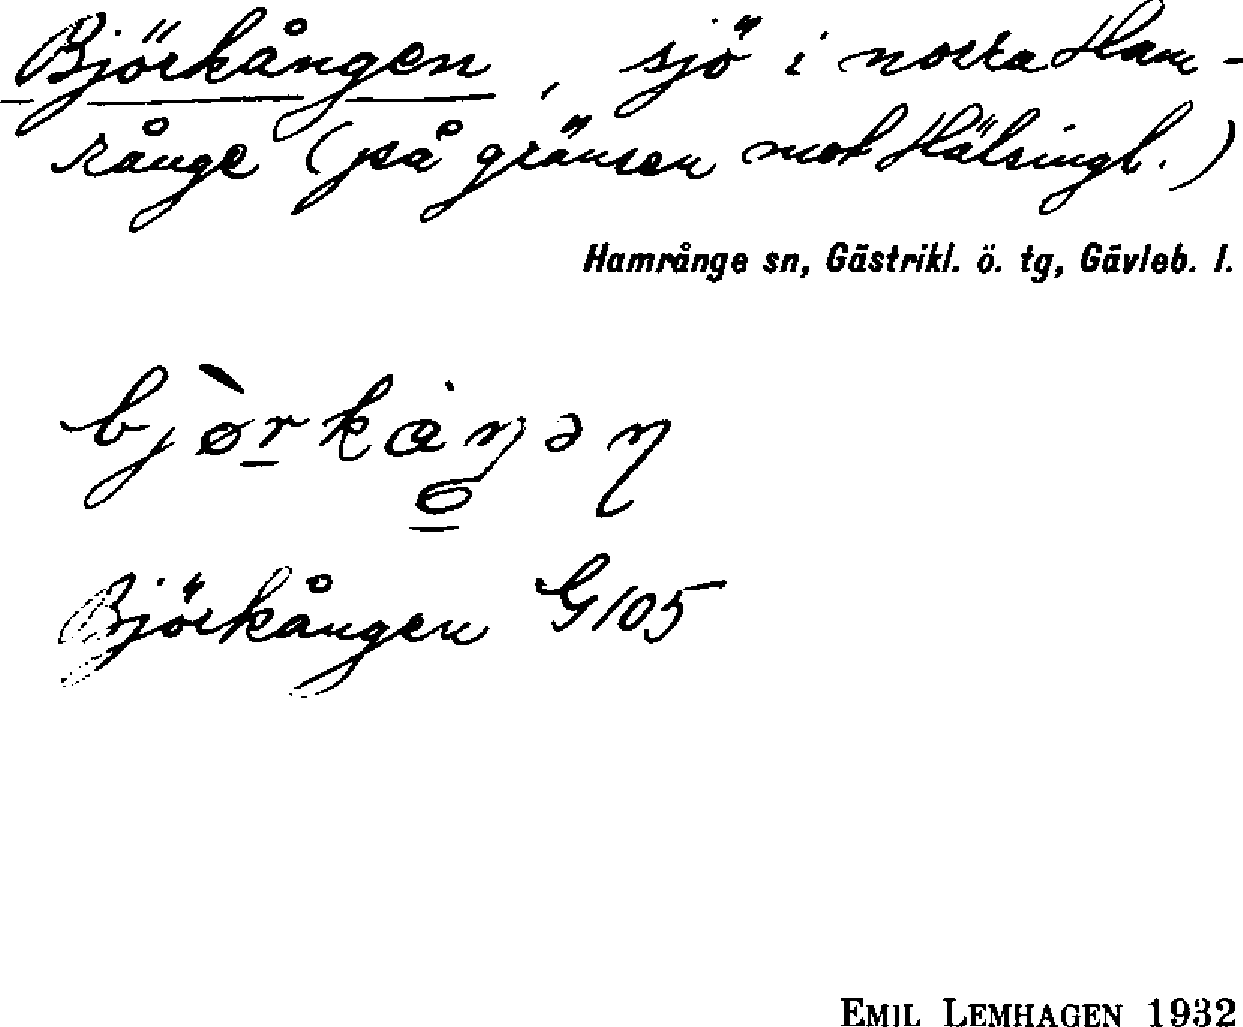 Björkången, sjö i norra Ham-
rånge (på gränsen mot Hälsingl.)
Hamrånge sn, Gästrikl. ö. tg, Gävleb. l.
bjørkåŋən
Björkången G105
EMIL LEMHAGEN 1932